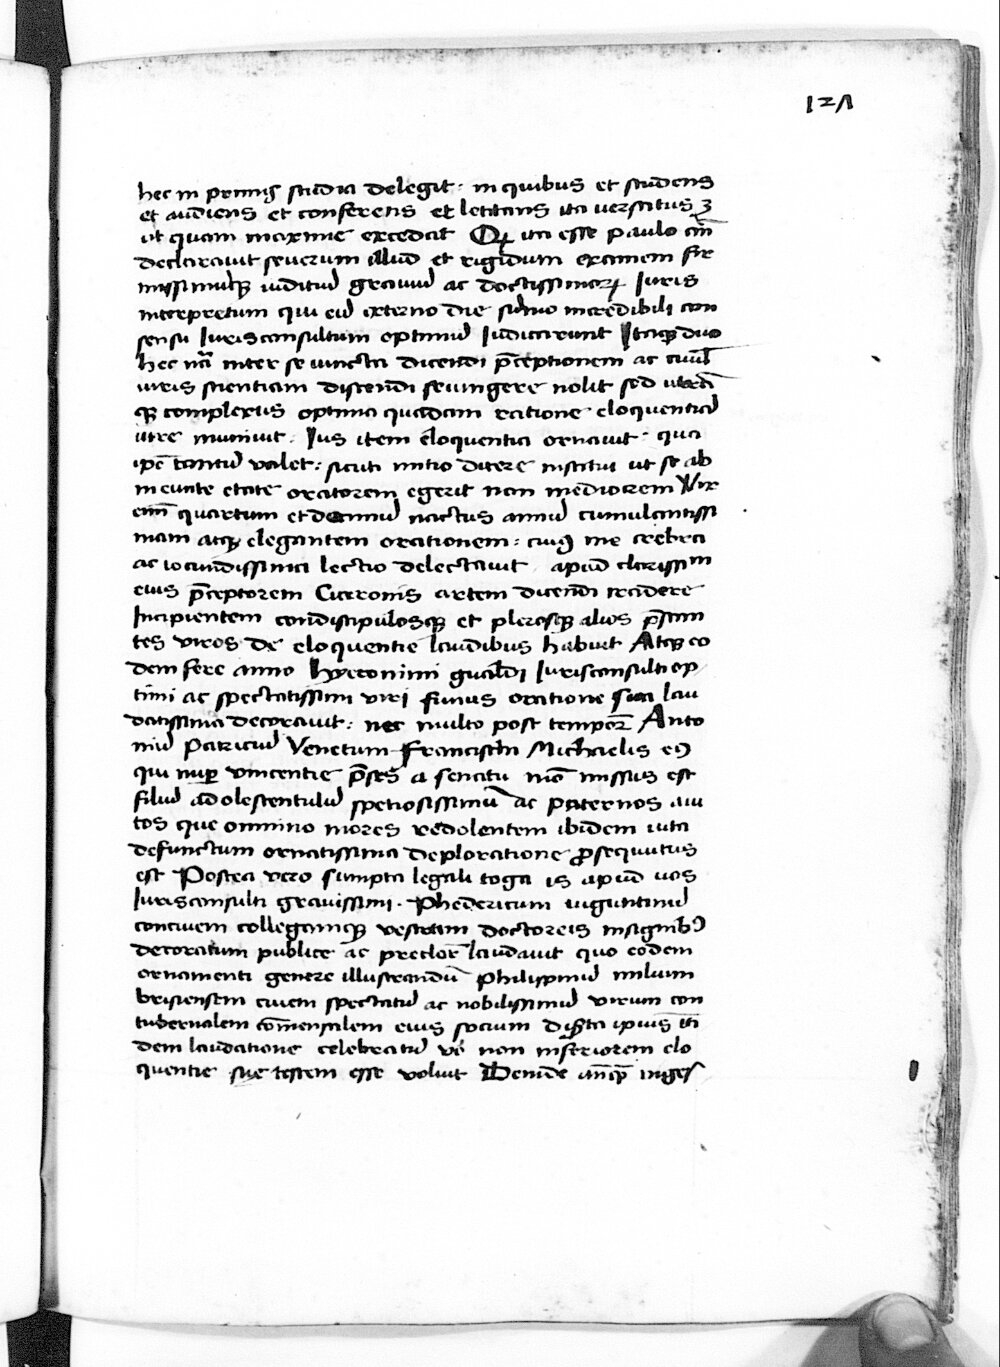 121
hec in primis studia delegit · in quibus et studens
et audiens et conferens et letitans ita versatus ʒ
ut quam maxime excedat Qꝫ ita esse paulo añ
declaravit severum illud et rigidum examen fir
missimūqꝫ iuditiū graviū ac doctissimoꝝ Iuris
interpretum qui eū externo die sūmo incredibili con
sensu Iurisconsultum optimū Iudicarunt Itaqꝫ duo
hec nā inter se iuncta dicendi p̄ceptionem ac civil̄
iuris scientiam discendi seiungere nolit sed utrā
qꝫ complexus optima quadam ratione eloquentiā
iure munivit . Ius item eloquentia ornavit · qua
ip̄e tantū valet : sicuti initio dicere institui ut se ab
ineunte etate oratorem egerit non mediocrem Vix
eni᷑ quartum et decimū nactus annū cumulantissi
mam atqꝫ elegantem orationem : cuiꝰ me crebra
ac iocundissima lectio delectavit . apud clarissim
eius p̄ceptorem Ciceronis artem dicendi tradere
Incipientem condiscipulosqꝫ et plerosqꝫ alios p̄stan
tes viros de eloquentie laudibus habuit Atqꝫ eo
dem fere anno Hyeronimi gualdi Iurisconsulti op
timi ac spectatissimi viri funus oratione sua lau
datissima decoravit : nec multo post tempoꝝ Anto
niū Patriciū Venetum Francisci Michaelis eꝰ
qui nuꝑ vincentie p̄ses a senatu mō missus est
filiū adolescentulū spetiosissimū ac paternos avi
tos que omnino mores redolentem ibidem vita
defunctum ornatissima deploratione ꝓsequutus
est Postea vero sumpta legali toga is apud vos
Iurisconsulti gravissimi · Phedericum vigintimiū
concivem collegamqꝫ vestram doctoreis insignibꝰ
decoratum publice ac preclare laudavit quo eodem
ornamenti genere illustrandū Philippinū milium
brisiensem civem spectatū ac nobilissimū virum con
tubernalem cōmensalem eius socium
dem laudatione celebratū vɫ non inferiorem elo
quentie sue testem esse voluit Deinde